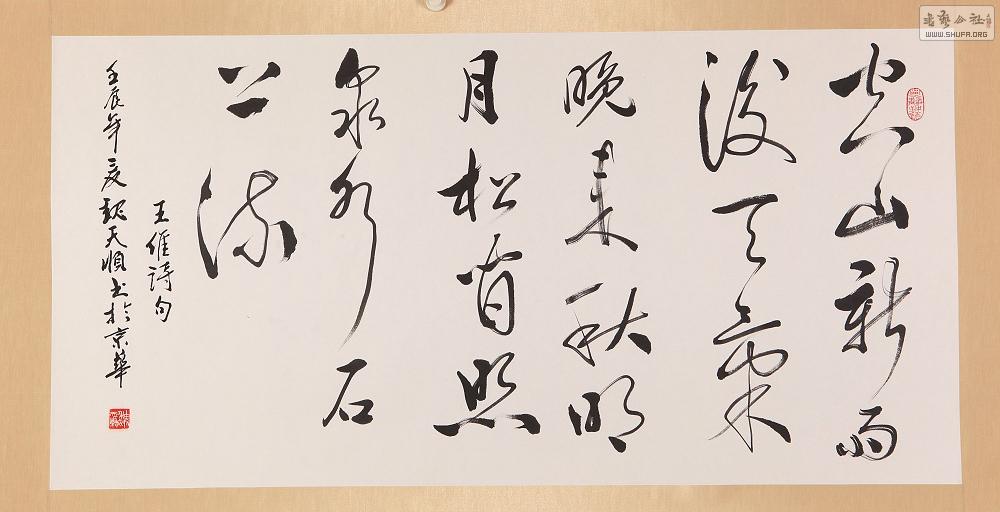 空山新雨
後天氣
晚来秋明
月松間照
泉水石
上流
王維詩句
壬辰年夏魏天順书於京華
書藝公社
WWW.SHUFA.ORG